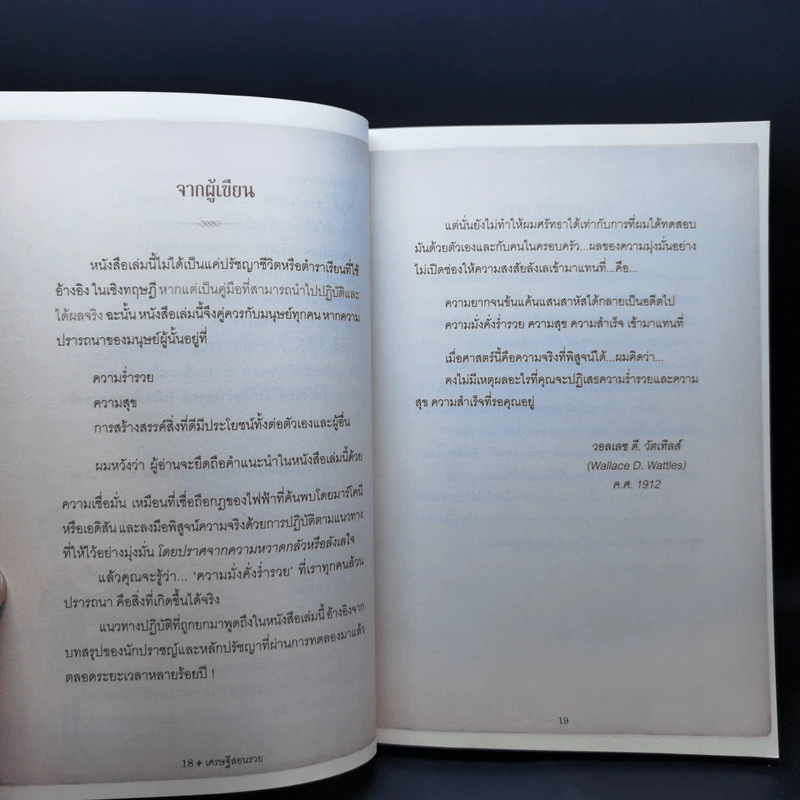 จากผู้เขียน
หนังสือเล่มนี้ไม่ได้เป็นแค่ปรัชญาชีวิตหรือตำราเรียนที่ใช้
อ้างอิง ในเชิงทฤษฎี หากแต่เป็นคู่มือที่สามารถนำไปปฏิบัติและ
ได้ผลจริง ฉะนั้น หนังสือเล่มนี้จึงคู่ควรกับมนุษย์ทุกคน หากความ
ปรารถนาของมนุษย์ผู้นั้นอยู่ที่
ความร่ำรวย
ความสุข
การสร้างสรรค์สิ่งที่ดีมีประโยชน์ทั้งต่อตัวเองและผู้อื่น
ผมหวังว่า ผู้อ่านจะยึดถือคำแนะนำในหนังสือเล่มนี้ด้วย
ความเชื่อมั่น เหมือนที่เชื่อถือกฎของไฟฟ้าที่ค้นพบโดยมาร์โคนี
หรือเอดิสัน และลงมือพิสูจน์ความจริงด้วยการปฏิบัติตามแนวทาง
ที่ให้ไว้อย่างมุ่งมั่น โดยปราศจากความหวาดกลัวหรือลังเลใจ
แล้วคุณจะรู้ว่า... ‘ความมั่งคั่งร่ำรวย’ ที่เราทุกคนล้วน
ปรารถนา คือสิ่งที่เกิดขึ้นได้จริง
แนวทางปฏิบัติที่ถูกยกมาพูดถึงในหนังสือเล่มนี้ อ้างอิงจาก
บทสรุปของนักปราชญ์และหลักปรัชญาที่ผ่านการทดลองมาแล้ว
ตลอดระยะเวลาหลายร้อยปี !
18 ✦ เศรษฐีสอนรวย
แต่นั่นยังไม่ทำให้ผมศรัทธาได้เท่ากับการที่ผมได้ทดสอบ
มันด้วยตัวเองและกับคนในครอบครัว...ผลของความมุ่งมั่นอย่าง
ไม่เปิดช่องให้ความสงสัยลังเลเข้ามาแทนที่...คือ...
ความยากจนข้นแค้นแสนสาหัสได้กลายเป็นอดีตไป
ความมั่งคั่งร่ำรวย ความสุข ความสำเร็จ เข้ามาแทนที่
เมื่อศาสตร์นี้คือความจริงที่พิสูจน์ได้...ผมคิดว่า...
คงไม่มีเหตุผลอะไรที่คุณจะปฏิเสธความร่ำรวยและความ
สุข ความสำเร็จที่รอคุณอยู่
วอลเลซ ดี. วัตเทิลส์
(Wallace D. Wattles)
ค.ศ. 1912
19